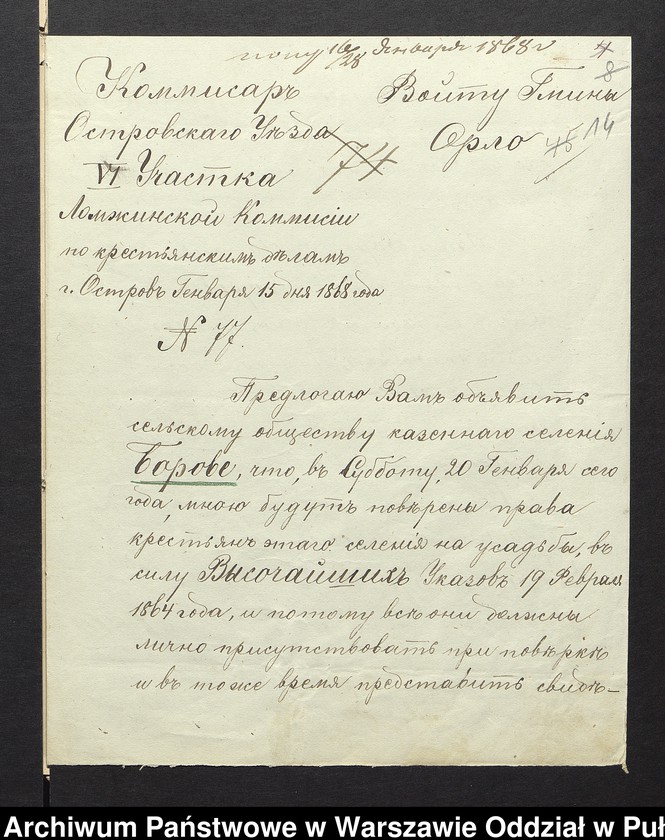 полу 16/28 Января 1868 г
4
8
Коммисаръ
Войту Гмины
Островскаго Уѣзда
Орло
45
14
74
VI Участка
Ломжинской Коммисіи
по крестьянскимъ дѣламъ
г. Островъ Генваря 15 дня 1868 года
N 77.
Предлогаю Вамъ объявить
сельскому обществу казеннаго селенія
Борове, что, въ Субботу, 20 Генваря сего
года, мною будутъ повѣрены права
крестьянъ этаго селенія на усадьбы, въ
силу Высочайшихъ Указовъ 19 Феврал
1864 года, и потому всѣ они должны
лично присутствовать при повѣркѣ
и въ тоже время представить свидѣ-
Archiwum Państwowe w Warszawie Oddział w Puł